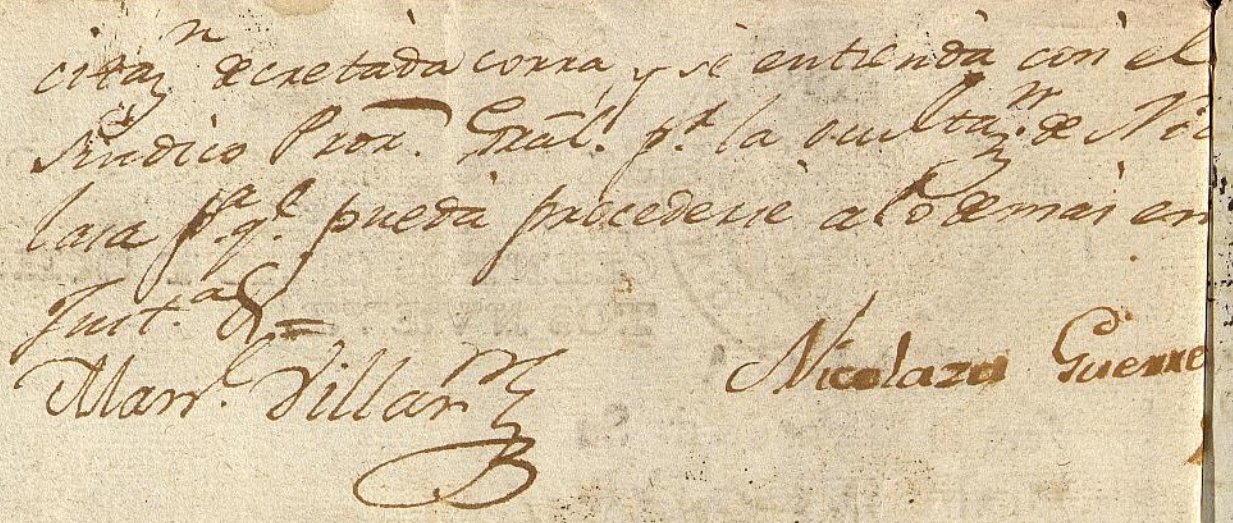 citaz.n decretada corra, y se entienda con el
Sindico Pror. Gral. pr. la ocultaz.n de Nic
lasa p.a q.e pueda procederse a lo demas en
Just.a &=
Man.l Villar
Nicolaza Guerre